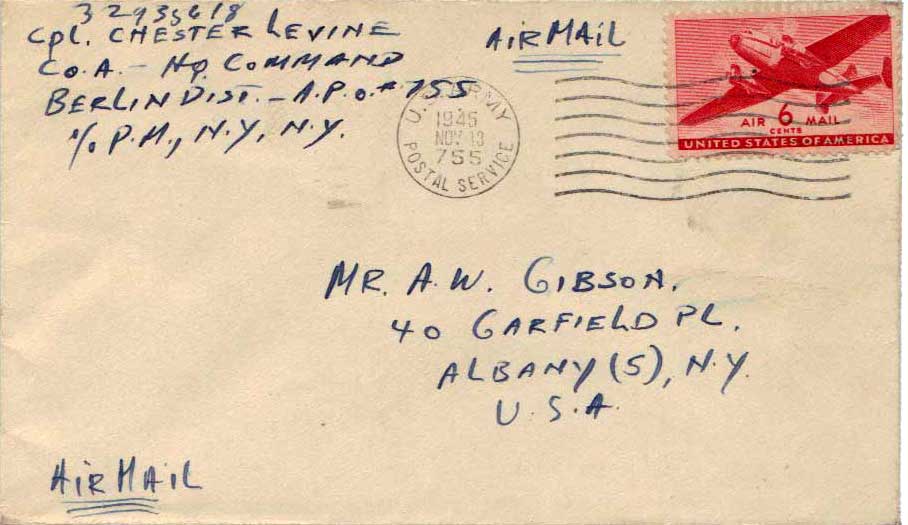 32935618
Cpl. CHESTER LEVINE
Co. A. - Hq. COMMAND
BERLIN DIST. - A.P.O. # 755
c/o P.M., N.Y., N.Y.
AIR MAIL
U.S. ARMY
1945
NOV 13
755
POSTAL SERVICE
AIR 6 MAIL
CENTS
UNITED STATES OF AMERICA
MR. A.W. GIBSON.
40 GARFIELD PL.
ALBANY (5), N.Y.
U.S.A.
AIR MAIL